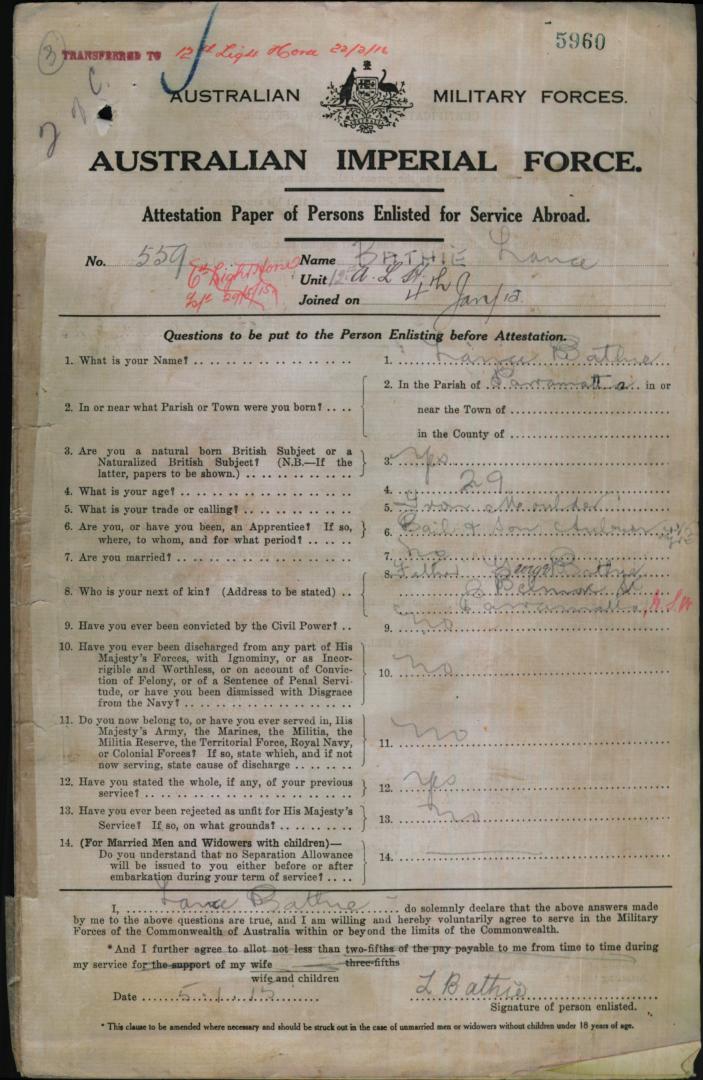 3
TRANSFERRED TO 12th Light Horse 22/2/16
5960
AUSTRALIAN MILITARY FORCES.
AUSTRALIAN IMPERIAL FORCE.
Attestation Paper of Persons Enlisted for Service Abroad.
No. 559
6th Light Horse
29/5/15
Name BATHIE Lance
Unit 12th A. L. H.
Joined on 4th Jan/15.
Questions to be put to the Person Enlisting before Attestation.
1. What is your Name? 1. Lance Bathie
2. In or near what Parish or Town were you born? 2. In the Parish of Parramatta in or
near the Town of
in the County of
3. Are you a natural born British Subject or a
Naturalized British Subject? (N.B.—If the
latter, papers to be shown.) 3. yes
4. What is your age? 4. 29
5. What is your trade or calling? 5. Iron Moulder
6. Are you, or have you been, an Apprentice? If so,
where, to whom, and for what period? 6. & Son
7. Are you married? 7. No
8. Who is your next of kin? (Address to be stated) 8. Father George Bathie
Parramatta, N.S.W
9. Have you ever been convicted by the Civil Power? 9. No
10. Have you ever been discharged from any part of His
Majesty's Forces, with Ignominy, or as Incor-
rigible and Worthless, or on account of Convic-
tion of Felony, or of a Sentence of Penal Servi-
tude, or have you been dismissed with Disgrace
from the Navy? 10. No
11. Do you now belong to, or have you ever served in, His
Majesty's Army, the Marines, the Militia, the
Militia Reserve, the Territorial Force, Royal Navy,
or Colonial Forces? If so, state which, and if not
now serving, state cause of discharge 11. No
12. Have you stated the whole, if any, of your previous
service? 12. yes
13. Have you ever been rejected as unfit for His Majesty's
Service? If so, on what grounds? 13. No
14. (For Married Men and Widowers with children)—
Do you understand that no Separation Allowance
will be issued to you either before or after
embarkation during your term of service? 14.
I, Lance Bathie do solemnly declare that the above answers made
by me to the above questions are true, and I am willing and hereby voluntarily agree to serve in the Military
Forces of the Commonwealth of Australia within or beyond the limits of the Commonwealth.
*And I further agree to allot not less than two-fifths of the pay payable to me from time to time during
three-fifths
my service for the support of my wife
wife and children
Date 5.1.15 L Bathie
Signature of person enlisted.
* This clause to be amended where necessary and should be struck out in the case of unmarried men or widowers without children under 18 years of age.